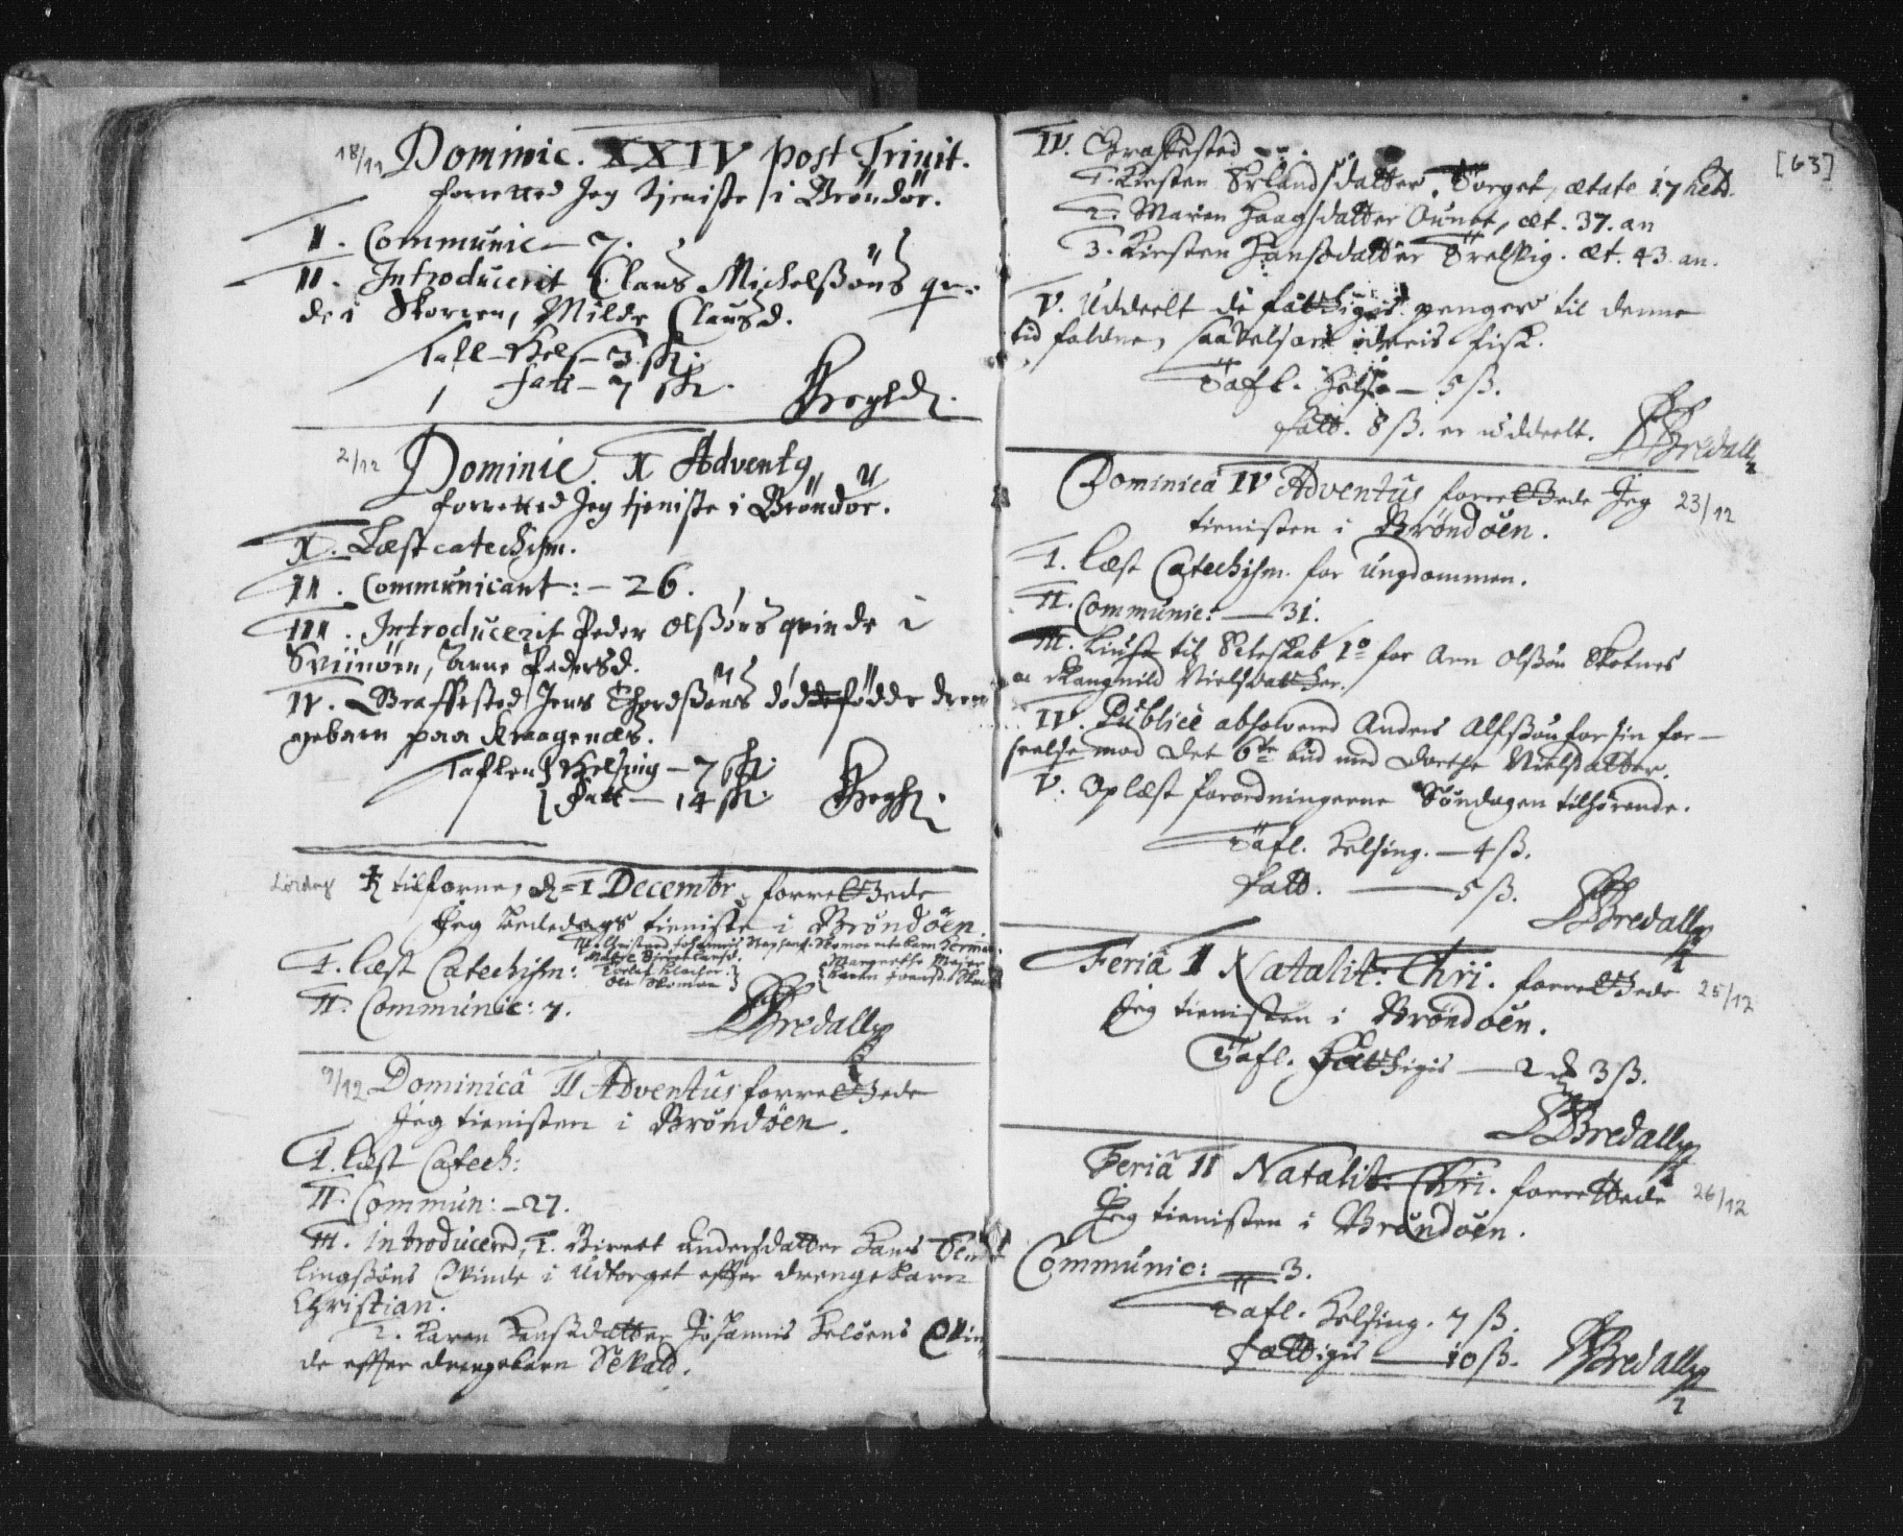 18/11 Dominic. XXIV post Trinit.
forretted Jeg tjeniste i Brøndör.
II. Communic – 7.
II. Introducerit Claus Michelßöns qvin-
de i Skoren, Milde Clausd.
Tafl – Hels – 3 sk:
fatt – 7 sk.
2/12 Dominic. I Advent9
forretted Jeg tjeniste i Brøndör.
I. Læst catechism.
II. Communicant: – 26.
III. Introducerit Peder Olßöns qvinde i
Sviinöen, Anne Pedersd.
IV. Graffested Jens Thordßöns dödfödde dren
gebarn paa Kraagenæs.
Taflen Helsing – 7 sk:
Fatt – 14 sk:
Løvdag tilforne, d. 1 Decembr, forrettede
Jeg Bededags tieniste i Brøndöen.
I. læst Catechism:
Margrethe Majer
Ole Skomon
II. Communic: 7.
Bredall
9/12 Dominicâ II Adventus forrettede
Jeg tienisten i Brøndöen.
I. læst Catech:
II. Commun: – 27.
III. introducered, 1. Birret Andersdatter Hans
lingßöns Qvinde i Udtorget effter drengebarn
Christian.
2. Karen Hansdatter Johannis Helöens Qvin
de effter drengebarn Sevald.
[63]
IV. Graffested
1. Kirsten Erlandsdatter, Torget, ætate 17
2. Maren Haagsdatter, æt. 37. an
3. Kirsten Hansdatter Trelvig. æt. 43 an.
V. Uddeelt de fattiges penger til denne
tid faldne, saavelsom fisk.
Tafl. Helsi – 5 ß.
fatt. 8 ß. er uddeelt.
Bredall
Dominicâ IV Adventus forrettede Jeg 23/12
tienisten i Brøndöen.
I. læst Catechism. for ungdommen.
II. Communic: – 31.
III. liust til Ecteskab 1º for Arn Olßön Skotnes
oc Rangnild Nielsdatter.
IV. Publicè absolvered Anders Alfßön for sin for-
seelse mod det 6te bud med Dorthe Nielsdatter.
V. Oplæst forordningerne Söndagen tilhörende.
Tafl. Helsing. – 4 ß.
Fatt. – 5 ß.
Bredall
Feriâ I Natalit: Chri. forrettede 25/12
Jeg tienisten i Brøndöen.
Tafl. Fattigis – 2 3 ß.
Bredall
Feriâ II Natalit: Chri. forrettede 26/12
Jeg tienisten i Brøndöen.
Communic: – 3.
Tafl. Helsing. 7 ß.
fattigis – 10 ß.
Bredall